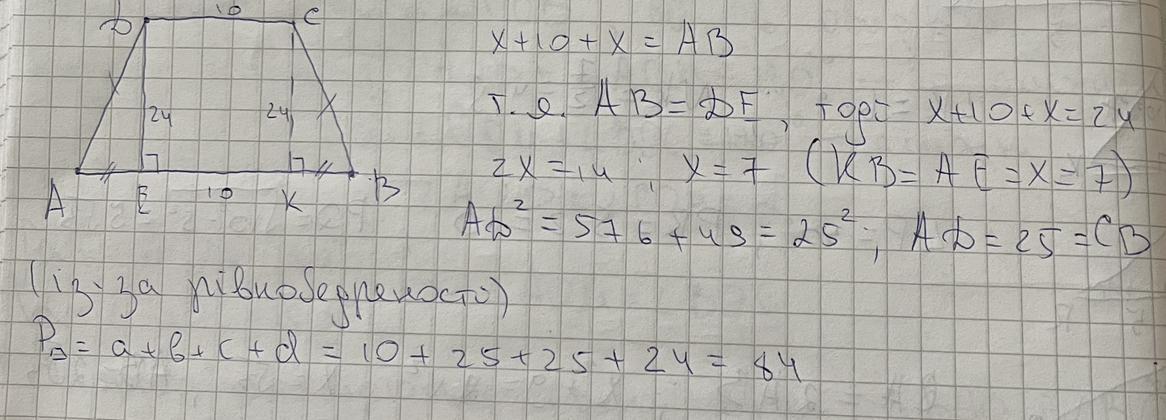 D 10 C
24 24
A E 10 K B
x+10+x = AB
т.я. AB = DE, тоді x+10+x = 24
2x = 14; x = 7 (KB = AE = x = 7)
AD² = 576 + 49 = 25²; AD = 25 = CB
(із-за рівнобедреності)
P = a + b + c + d = 10 + 25 + 25 + 24 = 84